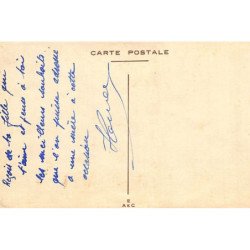 CARTE POSTALE
Reçois de ta fille qui
t'aime et pense à toi
les meilleurs souhaits
que l'on puisse adresser
à une mère à cette
occasion
8
AKC